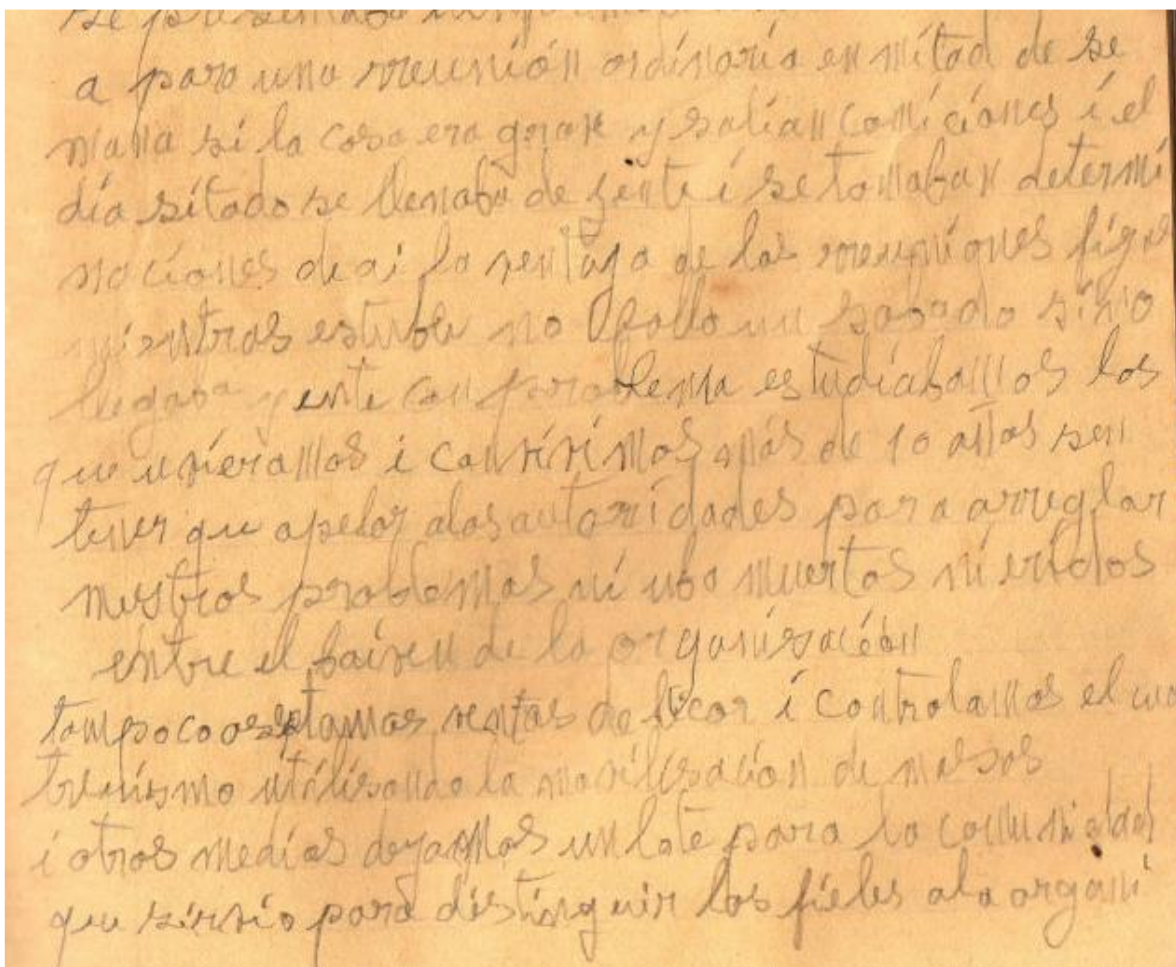 se presentaba
a para una rreunión ordinaria en mitad de se
mana si la cosa era grabe y salian comiciones i el
día sitado se llenaba de gente i se tomaban determi
naciones de ai la ventaja de las rreuniones figas
mientras estube no fallo un sabado sino
llegaba gente con problema estudiabamos los
que uvieramos i convivimos más de 10 años sen
tener que apelar alas autoridades para arreglar
nuestros problemas ni ubo muertos ni eridos
entre el de la organisación
tampoco aseptamos ventas de licor i controlamos el
utilisando la movilisación de masas
i otros medios dejamos un lote para la comunidad
que sirvio para distinguir los fieles ala organi